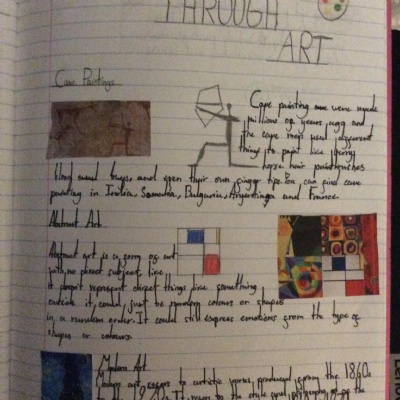 THROUGH
ART
Cave Paintings
Cave painting were made
millions of years ago and
the cave men used different
things to paint like berry
horse hair paintbrushes
and even their own finger tips. You can find cave
painting in India, Somalia, Bulgaria, Argentina and France
Abstract Art
Abstract art is a form of art
with no direct subject like
it doesn't represent object things like something
outside it could just be random colours or shapes
in a random order. It could still express emotions from the type of
shapes or colours.
Modern Art
Modern art refers to artistic works produced from the 1860s
to the 1970s. It refers to the style and philosophy of the